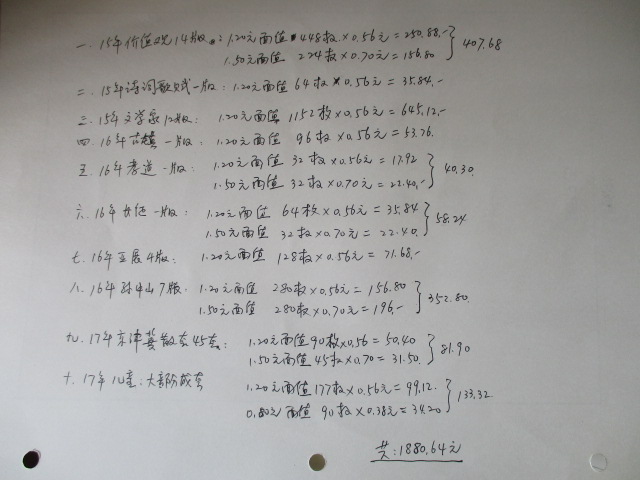 一. 15年价值观14版: 1.20元面值 448枚×0.56元=250.88.- 407.68
1.50元面值 224枚×0.70元=156.80
二. 15年诗词歌赋一版: 1.20元面值 64枚×0.56元=35.84.-
三. 15年文学家12版: 1.20元面值 1152枚×0.56元=645.12.-
四. 16年古镇一版: 1.20元面值 96枚×0.56元=53.76.
五. 16年孝道一版: 1.20元面值 32枚×0.56元=17.92 40.30.
1.50元面值 32枚×0.70元=22.40.-
六. 16年 一版: 1.20元面值 64枚×0.56元=35.84 58.24
1.50元面值 32枚×0.70元=22.40.
七. 16年亚展4版: 1.20元面值 128枚×0.56元=71.68.-
八. 16年孙中山7版: 1.20元面值 280枚×0.56元=156.80 352.80
1.50元面值 280枚×0.70元=196.-
九. 17年京津冀散套45套: 1.20元面值90枚×0.56=50.40 81.90
1.50元面值45枚×0.70=31.50.
十. 17年儿童:大部份成套 1.20元面值177枚×0.56元=99.12. 133.32
0.80元面值 90枚×0.38元=34.20
共:1880.64元